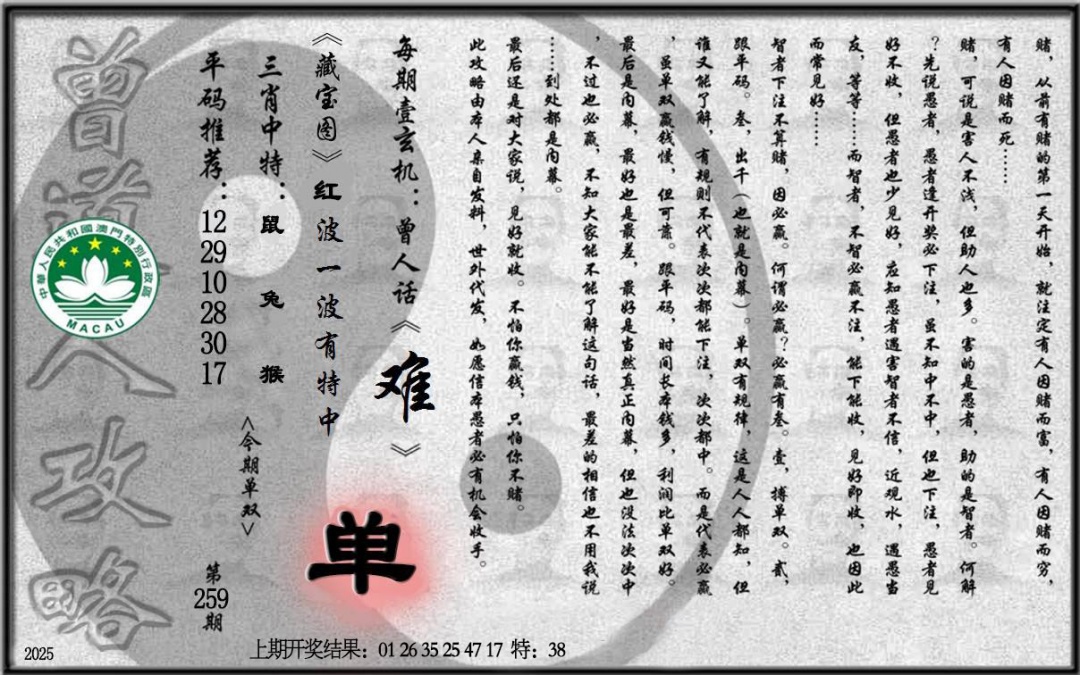 赌，从前有赌的第一天开始，就注定有人因赌而富，有人因赌而穷，
有人因赌而死……
赌，可说是害人不浅，但助人也多。害的是愚者，助的是智者。何解
？先说愚者，愚者逢开奖必下注，虽不知中不中，但也下注，愚者见
好不收，但愚者也少见好，应知愚者遇害智者不信，近观水，遇愚当
友，等等……而智者，不智必赢不注，能下能收，见好即收，也因此
而常见好……
智者下注不算赌，因必赢。何谓必赢？必赢有叁。壹，搏单双。贰，
跟平码。叁，出千（也就是内幕）。单双有规律，这是人人都知，但
谁又能了解，有规则不代表次次都能下注，次次都中。而是代表必赢
，虽单双赢钱慢，但可靠。跟平码，时间长本钱多，利润比单双好。
最后是内幕，最好也是最差，最好是当然真正内幕，但也没法次次中
，不过也必赢，不知大家能不能了解这句话，最差的相信也不用我说
……到处都是内幕。
最后还是对大家说，见好就收。不怕你赢钱，只怕你不赌。
此攻略由本人亲自发料，世外代发，如愿信本愚者必有机会收手。
每期壹玄机：曾人话《难》
《藏宝图》红波一波有特中
单
三肖中特：鼠 兔 猴
<今期单双>
平码推荐：12 29 10 28 30 17
第259期
曾道人攻略
中華人民共和國澳門特別行政區
MACAU
2025
上期开奖结果：01 26 35 25 47 17 特：38